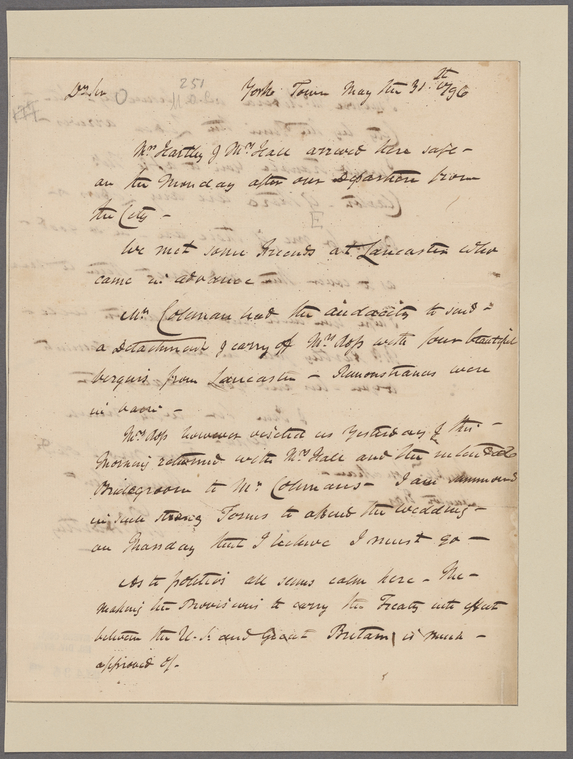 251
Dr Sir York Town May the 31st 1796
Mrs Hartley & Mrs Hall arrived here safe -
on the Monday after our Departure from
the City -
We met some Friends at Lancaster who
came in advance
Mr Coleman had the audacity to send -
a Detachment & carry off Mrs Ross with four beautiful
from Lancaster - Remonstrances were
in vain -
Mrs Ross however visited us Yesterday & this -
Morning returned with Mrs Hall and the intended
Bridegroom to Mr Colemans - I am summoned
in such strong Terms to attend the wedding -
on Thursday that I believe I must go -
As to politics all seems calm here - The -
making the Provisions to carry the Treaty into effect
between the U.S. and Great Britain, is much -
approved of -